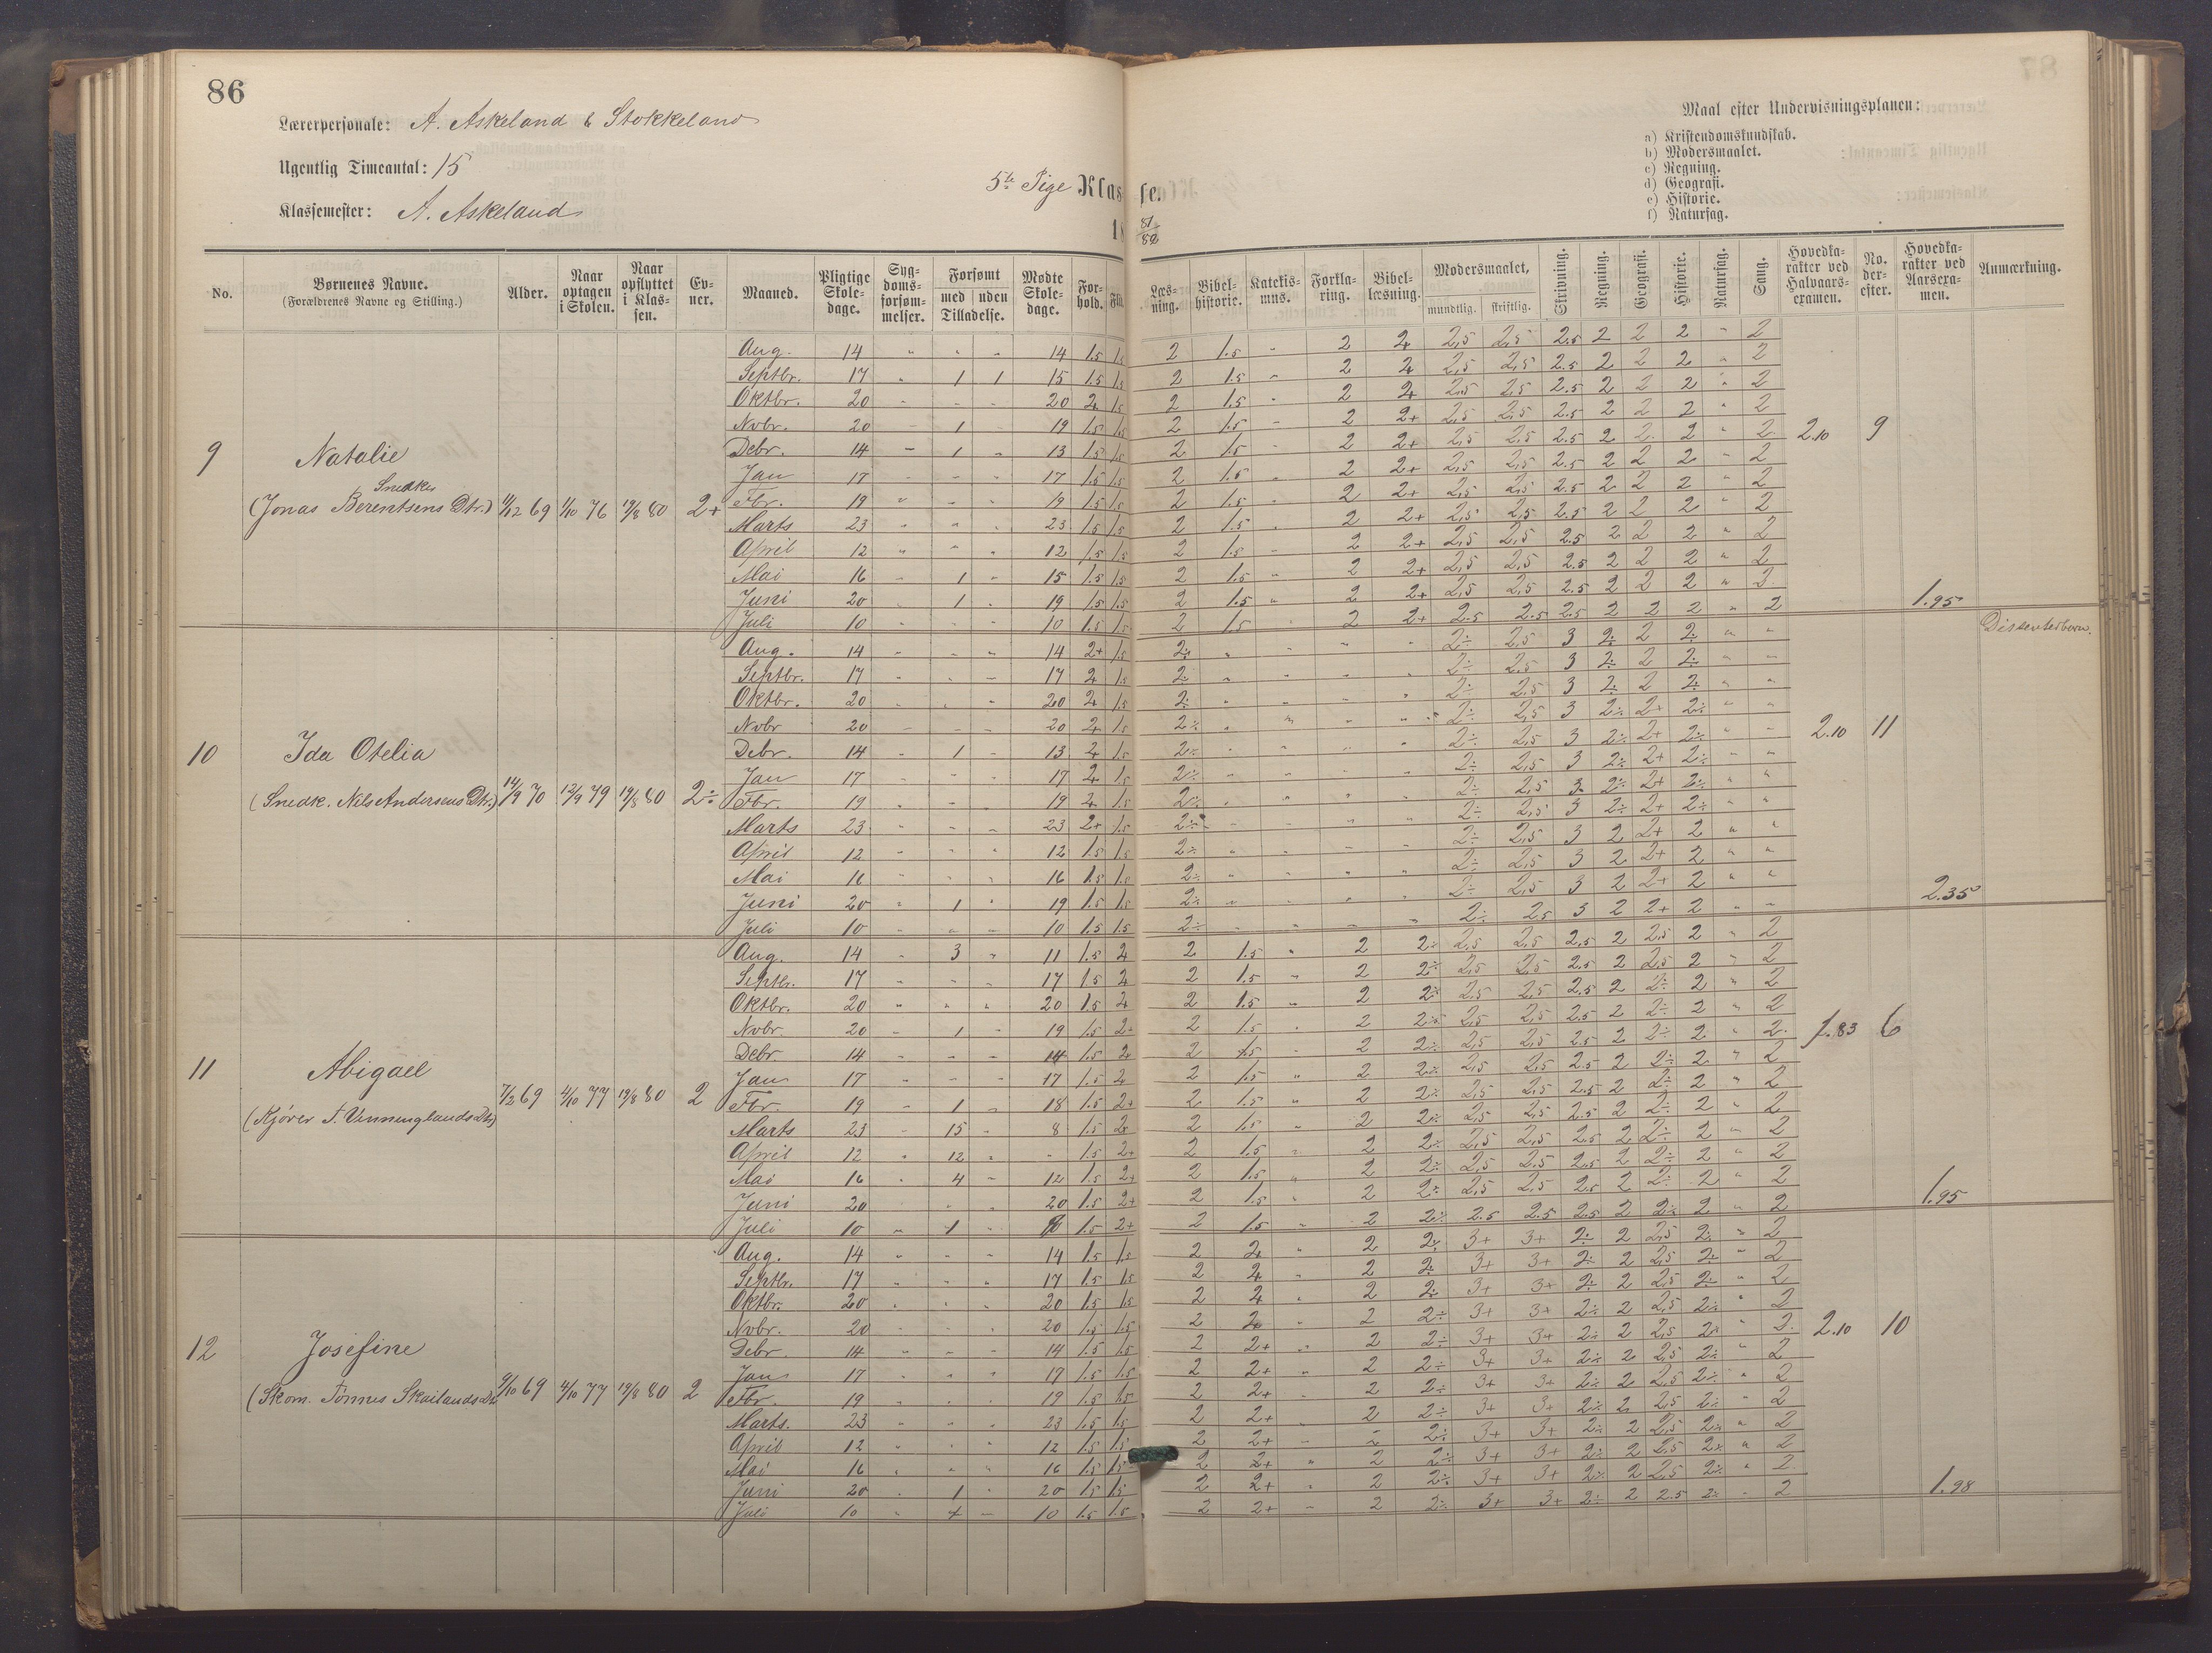 86
Lærerpersonale: A. Askeland & Stokkeland
Ugentlig Timeantal: 15
Klassemester: A. Askeland
5te Pige Klasse.
18 81/82
Maal efter Undervisningsplanen:
a) Kristendomskundskab.
b) Modersmaalet.
c) Regning.
d) Geografi.
e) Historie.
f) Naturfag.
No. | Børnenes Navne. (Forældrenes Navne og Stilling.) | Alder. | Naar optagen i Skolen. | Naar opflyttet i Klassen. | Evner. | Maaned. | Pligtige Skoledage. | Sygdomsforsømmelser. | Forsømt med uden Tilladelse. | Mødte Skoledage. | Forhold. | Flid | Læsning. | Bibelhistorie. | Katekismus. | Forklaring. | Bibellæsning. | Modersmaalet, mundtlig. skriftlig. | Skrivning. | Regning. | Geografi. | Historie. | Naturfag. | Sang. | Hovedkarakter ved Halvaarsexamen. | No. derefter. | Hovedkarakter ved Aarsexamen. | Anmærkning.
9 Natalie
Snedker
(Jonas Berentsens Dtr.) 11/12 69 1/10 76 19/8 80 2+
Aug. 14 " " " 14 1.5 1.5 2 1.5 " 2 2+ 2,5 2,5 2.5 2 2 2 " 2
Septbr. 17 " 1 1 15 1.5 1.5 2 1.5 " 2 2+ 2,5 2,5 2.5 2 2 2 " 2
Oktbr. 20 " " " 20 2+ 1.5 2 1.5 " 2 2+ 2,5 2,5 2.5 2 2 2 " 2
Nvbr. 20 " 1 " 19 1.5 1.5 2 1.5 " 2 2+ 2,5 2,5 2.5 2 2 2 " 2
Debr. 14 " 1 " 13 1.5 1.5 2 1.5 " 2 2+ 2,5 2,5 2.5 2 2 2 " 2 2.10 9
Jan 17 " " " 17 1.5 1.5 2 1.5 " 2 2+ 2,5 2,5 2.5 2 2 2 " 2
Fbr. 19 " " " 19 1.5 1.5 2 1.5 " 2 2+ 2,5 2,5 2.5 2 2 2 " 2
Marts 23 " " " 23 1.5 1.5 2 1.5 " 2 2+ 2,5 2,5 2.5 2 2 2 " 2
April 12 " " " 12 1.5 1.5 2 1.5 " 2 2+ 2,5 2,5 2.5 2 2 2 " 2
Mai 16 " 1 " 15 1.5 1.5 2 1.5 " 2 2+ 2,5 2,5 2.5 2 2 2 " 2
Juni 20 " 1 " 19 1.5 1.5 2 1.5 " 2 2+ 2,5 2,5 2.5 2 2 2 " 2
Juli 10 " " " 10 1.5 1.5 2 1.5 " 2 2+ 2.5 2.5 2.5 2 2 2 " 2 1.95
10 Ida Otelia
(Snedk. Nils Andersens Dtr.) 14/9 70 12/9 79 19/8 80 2÷
Dissenterbarn.
Aug. 14 " " " 14 2+ 1.5 2÷ " " " " 2÷ 2,5 3 2÷ 2 2÷ " "
Septbr. 17 " " " 17 2+ 1.5 2÷ " " " " 2÷ 2,5 3 2÷ 2 2÷ " "
Oktbr. 20 " " " 20 2+ 1.5 2÷ " " " " 2÷ 2,5 3 2÷ 2 2÷ " "
Nvbr 20 " " " 20 2+ 1.5 2÷ " " " " 2÷ 2,5 3 2÷ 2+ 2÷ " "
Debr. 14 " 1 " 13 2+ 1.5 2÷ " " " " 2÷ 2,5 3 2÷ 2+ 2÷ " " 2.10 11
Jan 17 " " " 17 2+ 1.5 2÷ " " " " 2÷ 2,5 3 2÷ 2+ 2÷ " "
Fbr. 19 " " " 19 2+ 1.5 2÷ " " " " 2÷ 2,5 3 2÷ 2+ 2÷ " "
Marts 23 " " " 23 2+ 1.5 2÷ " " " " 2÷ 2,5 3 2÷ 2+ 2÷ " "
April 12 " " " 12 1.5 1.5 2÷ " " " " 2÷ 2,5 3 2 2+ 2 " "
Mai 16 " " " 16 1.5 1.5 2÷ " " " " 2÷ 2,5 3 2 2+ 2 " "
Juni 20 " 1 " 19 1.5 1.5 2÷ " " " " 2÷ 2,5 3 2 2+ 2 " "
Juli 10 " " " 10 1.5 1.5 2÷ " " " " 2÷ 2.5 3 2 2+ 2 " " 2.35
11 Abigael
(Kjører T. Venninglands Dtr) 7/2 69 4/10 77 19/8 80 2
Aug. 14 " 3 " 11 1.5 2+ 2 1.5 " 2 2÷ 2,5 2,5 2.5 2 2,5 2 " 2
Septbr. 17 " " " 17 1.5 2+ 2 1.5 " 2 2÷ 2,5 2,5 2.5 2 2,5 2 " 2
Oktbr. 20 " " " 20 1.5 2+ 2 1.5 " 2 2÷ 2,5 2,5 2.5 2 2÷ 2 " 2
Nvbr. 20 " 1 " 19 1.5 2+ 2 1.5 " 2 2÷ 2,5 2,5 2.5 2 2÷ 2 " 2
Debr 14 " " " 14 1.5 2+ 2 1.5 " 2 2÷ 2,5 2,5 2.5 2 2÷ 2 " 2 1.83 6
Jan 17 " " " 17 1.5 2+ 2 1.5 " 2 2÷ 2,5 2,5 2.5 2 2÷ 2 " 2
Fbr. 19 " 1 " 18 1.5 2+ 2 1.5 " 2 2÷ 2,5 2,5 2.5 2 2÷ 2 " 2
Marts 23 " 15 " 8 1.5 2+ 2 1.5 " 2 2÷ 2,5 2,5 2.5 2 2÷ 2 " 2
April 12 " 12 " " 1.5 2+ 2 1.5 " 2 2÷ 2,5 2,5 2.5 2 2÷ 2 " 2
Mai 16 " 4 " 12 1.5 2+ 2 1.5 " 2 2÷ 2,5 2.5 2.5 2 2÷ 2 " 2
Juni 20 " " " 20 1.5 2+ 2 1.5 " 2 2÷ 2,5 2,5 2.5 2 2÷ 2 " 2
Juli 10 " 1 " 1.5 2+ 2 1.5 " 2 2÷ 2.5 2.5 2.5 2 2÷ 2 " 2 1.95
12 Josefine
(Skom. Tönnes Skailands Dtr 9/10 69 4/10 77 19/8 80 2
Aug. 14 " " " 14 1.5 1.5 2 2+ " 2 2÷ 3+ 3+ 2÷ 2 2,5 2÷ " 2
Septbr. 17 " " " 17 1.5 1.5 2 2+ " 2 2÷ 3+ 3+ 2÷ 2 2,5 2÷ " 2
Oktbr. 20 " " " 20 1.5 1.5 2 2+ " 2 2÷ 3+ 3+ 2÷ 2 2,5 2÷ " 2
Nvbr. 20 " " " 20 1.5 1.5 2 2+ " 2 2÷ 3+ 3+ 2÷ 2 2,5 2÷ " 2
Debr 14 " " " 14 1.5 1.5 2 2+ " 2 2÷ 3+ 3+ 2÷ 2 2,5 2÷ " 2 2.10 10
Jan 17 " " " 17 1.5 1.5 2 2+ " 2 2÷ 3+ 3+ 2÷ 2 2,5 2÷ " 2
Fbr. 19 " " " 19 1.5 1.5 2 2+ " 2 2÷ 3+ 3+ 2÷ 2 2,5 2÷ " 2
Marts. 23 " " " 23 1.5 1.5 2 2+ " 2 2÷ 3+ 3+ 2÷ 2 2,5 2÷ " 2
April 12 " " " 12 1.5 1.5 2 2+ " 2 2÷ 3+ 3+ 2÷ 2 2,5 2÷ " 2
Mai 16 " " " 16 1.5 1.5 2 2+ " 2 2÷ 3+ 3+ 2÷ 2 2.5 2÷ " 2
Juni 20 " 1 " 20 1.5 1.5 2 2+ " 2 2÷ 3+ 3+ 2÷ 2 2,5 2÷ " 2
Juli 10 " " 10 1.5 1.5 2 2+ " 2 2÷ 3+ 3+ 2÷ 2 2.5 2÷ " 2 1.98